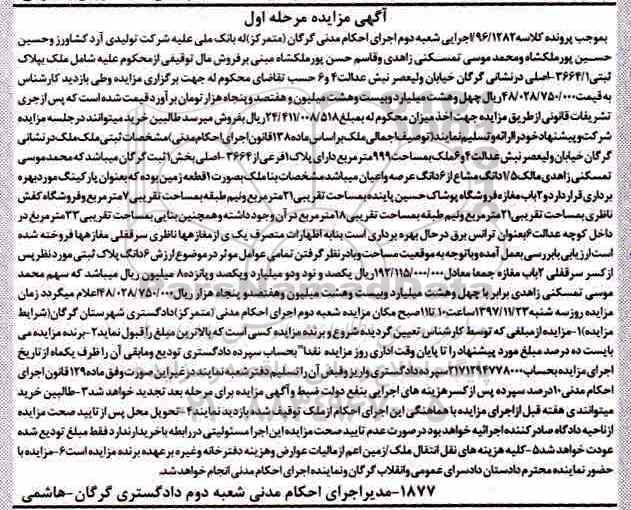 آگهی مزایده مرحله اول
بموجب پرونده کلاسه ۹۶/۱۲۸۲/اجرایی شعبه دوم اجرای احکام مدنی گرگان (متمرکز)له بانک ملی علیه شرکت تولیدی آرد کشاورز وحسین
حسین پورملکشاه ومحمد موسی تمسکنی زاهدی وقاسم حسن پورملکشاه مبنی برفروش مال توقیفی ازمحکوم علیه شامل ملک پیلاک
ثبتی۳۶۶۴/۱-اصلی درنشانی گرگان خیابان ولیعصر نبش عدالت۴ و۶ حسب تقاضای محکوم له جهت برگزاری مزایده وطی بازدید کارشناس
به قیمت۴۸/۰۲۸/۷۵۰/۰۰۰ریال چهل وهشت میلیارد وبیست وهشت میلیون و هفتصد و پنجاه هزار تومان برآورد قیمت شده است که پس ازجری
تشریفات قانونی ازطریق مزایده جهت اخذ میزان محکوم له بمبلغ ۲۴/۴۱۱/۰۰۸/۵۱۸ریال بفروش میرسد طالبین خرید میتوانند درجلسه مزایده
شرکت وپیشنهادخود راارائه وتسلیم نمایند(توصیف اجمالی ملک براساس ماده۱۳۸قانون اجرای احکام مدنی)مشخصات ثبتی ملک ملک درنشانی
گرگان خیابان ولیعصر نبش عدالت۴و۶ملک بمساحت۹۹۹مترمربع دارای پلاک۱فرعی از۳۶۶۴-اصلی بخش۱ثبت گرگان میباشد که محمد موسی
تمسکنی زاهدی مالک۱/۵دانگ مشاع از۶دانگ عرصه واعیان میباشد مشخصات بنا ملک بصورت۱قطعه زمین بوده که بعنوان پارکینگ مورد بهره
برداری قرار دارد و۲باب مغازه فروشگاه پوشاک حسین پاینده بمساحت تقریبی۲۱مترمربع ونیم طبقه بمساحت تقریبی۷مترمربع وفروشگاه کفش
ناظری بمساحت تقریبی۲۱مترمربع ونیم طبقه بمساحت تقریبی۱۸مترمربع در آن وجود داشته وهمچنین بنایی بمساحت تقریبی۲۳مترمربع در
داخل کوچه عدالت۶بعنوان ترانس برق درحال بهره برداری است بنابه اظهارات متصرف یک ی ازمغازهها ناظری سرقفلی مغازهها فروخته شده
است ارزیابی بابررسی بعمل آمده وباتوجه به موقعیت مساحت وبادرنظر گرفتن تمامی عوامل موثر درموضوع ارزش ۶دانگ پلاک ثبتی موردنظر پس
از کسر سرقفلی ۲باب مغازه جمعا معادل۱۹۲/۱۱۵/۰۰۰/۰۰۰ریال یکصد و نود ودو میلیارد ویکصد وپانزده میلیون ریال میباشد که سهم محمد
موسی تمسکنی زاهدی برابر با چهل وهشت میلیارد وبیست وهشت میلیون وهفتصدو پنجاه هزار ریال۴۸/۰۲۸/۷۵۰/۰۰۰اعلام میگردد زمان
مزایده روزسه شنبه۱۳۹۷/۱۱/۲۳ساعت۱۰تا۱۱صبح مکان مزایده شعبه دوم اجرای احکام مدنی (متمرکز)دادگستری شهرستان گرگان(شرایط
مزایده)۱-مزایده ازمبلغی که توسط کارشناس تعیین گردیده شروع و برنده مزایده کسی است که بالاترین مبلغ را قبول نماید۲-برنده مزایده می
بایست ده درصد مبلغ مورد پیشنهاد را تا پایان وقت اداری روز مزایده نقدا" بحساب سپرده دادگستری تودیع ومابقی آن را ظرف یکماه ازتاریخ
اجرای مزایده بحساب۲۱۷۱۲۹۴۷۷۸۰۰۰سپرده دادگستری واریز وفیش آن را تسلیم دفترشعبه نمایند درغیراین صورت وفق ماده۱۲۹قانون اجرای
احکام مدنی۱۰درصد سپرده پس ازکسرهزینه های اجرایی بنفع دولت ضبط وآگهی مزایده برای مرحله بعد تجدید خواهد شد۳-طالبین خرید
میتوانندی هفته قبل ازاجرای مزایده با هماهنگی این اجرای احکام ازملک توقیف شده بازدید نمایند۴-تحویل محل پس از تایید صحت مزایده
ازناحیه دادگاه صادرکننده اجرائیه خواهدبود درصورت عدم تایید صحت مزایده این اجرا مسئولیتی دررابطه باخریدارندارد فقط مبلغ تودیع شده
عودت خواهد شد۵-کلیه هزینه های نقل انتقال ملک /زمین اعم ازمالیات عوارض وهزینه دفترخانه وغیره برعهده برنده مزایده است۶-مزایده با
حضور نماینده محترم دادستان دادسرای عمومی وانقلاب گرگان ونماینده اجرای احکام مدنی انجام خواهدشد.
۱۸۷۷-مدیراجرای احکام مدنی شعبه دوم دادگستری گرگان -هاشمی